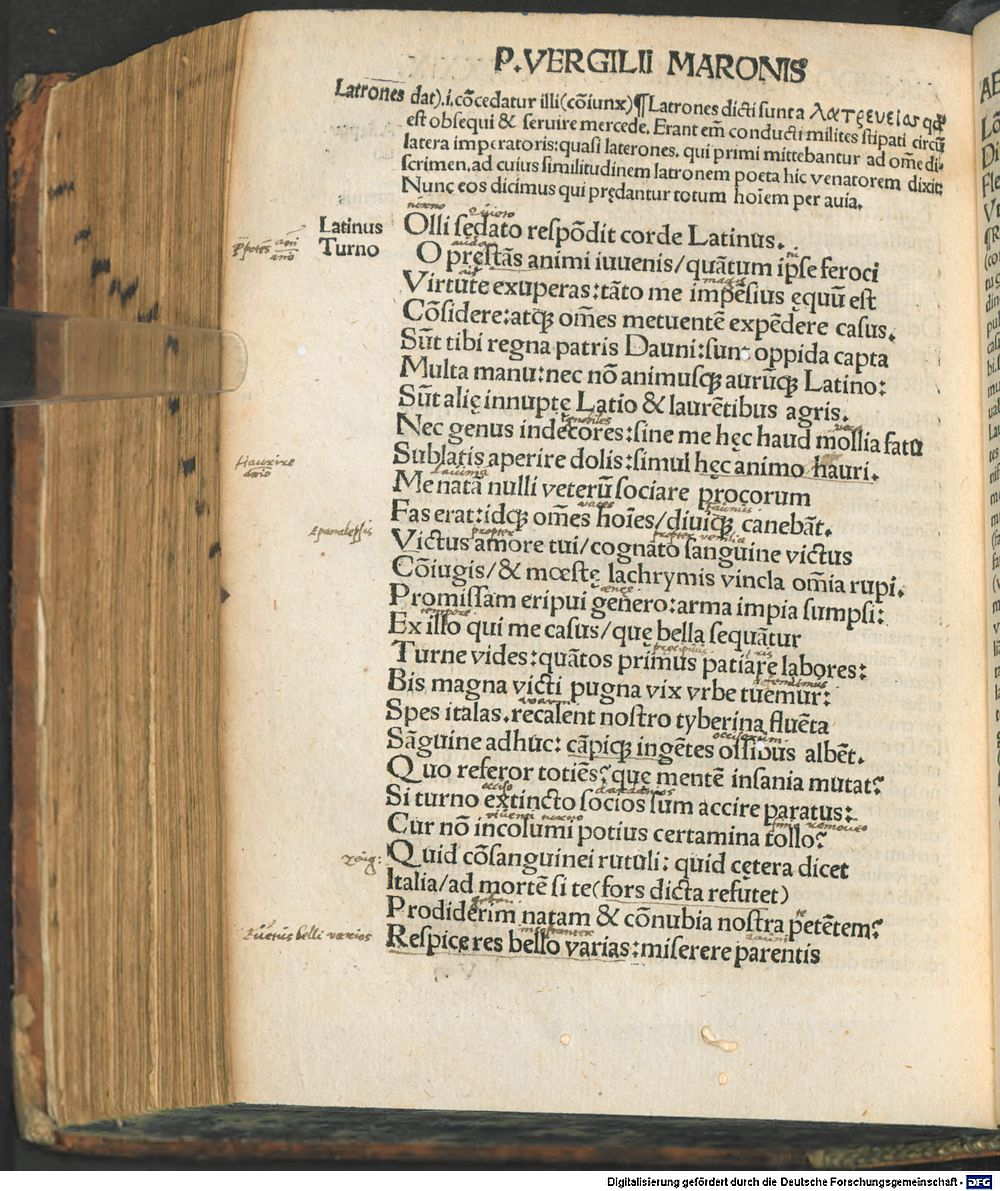 P. VERGILII MARONIS
Latrones dat).i.cōcedatur illi(cōiunx)¶Latrones dicti sunt a λατρευειας qđ
est obsequi & seruire mercede. Erant em̄ conducti milites stipati circū
latera imperatoris:quasi laterones. qui primi mittebantur ad om̄e di-
scrimen.ad cuius similitudinem latronem poeta hic venatorem dixit:
Nunc eos dicimus qui prędantur totum hoiem per auia.
Latinus
Turno
Olli sędato respōdit corde Latinus.
O pręstās animi iuuenis/quātum ipse feroci
Virtute exuperas:tāto me impēsius ęquū est
Cōsidere:atq̧ om̄es metuentē expēdere casus.
Sūt tibi regna patris Dauni:sunt oppida capta
Multa manu:nec nō animusq̧ aurūq̧ Latino:
Sūt alię innuptę Latio & laurētibus agris.
Nec genus indecores:sine me hęc haud mollia fatu
Sublatis aperire dolis:simul hęc animo hauri.
Me natā nulli veterū sociare procorum
Fas erat:idq̧ om̄es hoīes/diuiq̧ canebāt.
Victus amore tui/cognato sanguine victus
Cōiugis/& mœstę lachrymis vincla om̄ia rupi.
Promissam eripui genero:arma impia sumpsi:
Ex illo qui me casus/quę bella sequātur
Turne vides:quātos primus patiare labores:
Bis magna victi pugna vix vrbe tuemur:
Spes italas.recalent nostro tyberina fluēta
Sāguine adhuc: cāpiq̧ ingētes ossibus albēt.
Quo referor totiēs?quę mentē insania mutat?
Si turno extincto socios sum accire paratus:
Cur nō incolumi potius certamina tollo?
Quid cōsanguinei rutuli: quid cętera dicet
Italia/ad mortē si te(fors dicta refutet)
Prodiderim natam & cōnubia nostra petētem?
Respice res bello varias:miserere parentis
Haurire
animo
Epanalepsis
Euentus belli varios
Digitalisierung gefördert durch die Deutsche Forschungsgemeinschaft - DFG